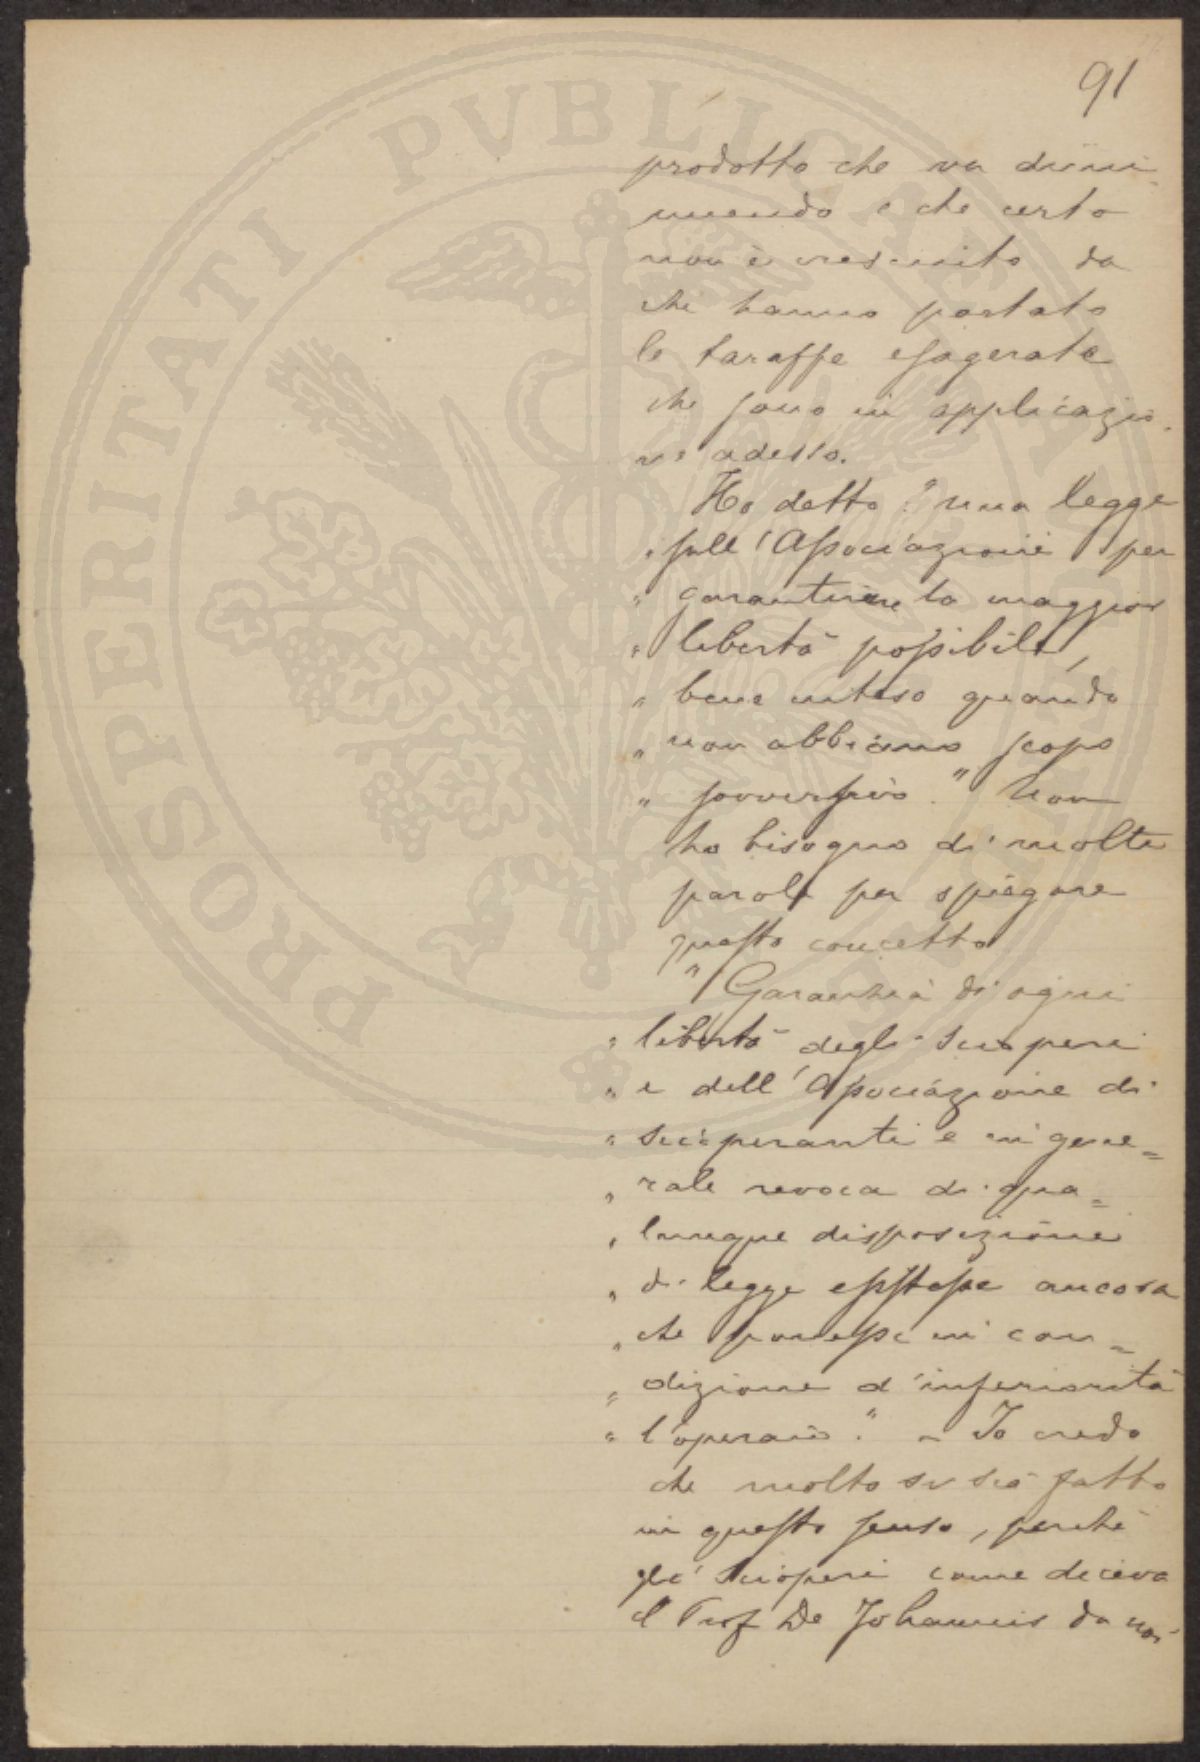 91
PROSPERITATI PVBLICAE
prodotto che va dimi-
nuendo e che certo
non è cresciuto da
che hanno portato
le tariffe esagerate
che sono in applicazio-
ne adesso.
Ho detto: "una legge
" sull'Associazione per
" garantirne la maggior
" libertà possibile,
" bene inteso quando
" non abbiano scopo
" sovversivo." Non
ho bisogno di molte
parole per spiegare
questo concetto
" Garanzia di ogni
" libertà degli scioperi
" e dell'Associazione di
" scioperanti e in gene=
" rale revoca di qua=
" lunque disposizione
" di legge esistesse ancora
" che ponesse in con=
" dizione d'inferiorità
" l'operaio." - Io credo
che molto si sia fatto
in questo senso, perchè
gli scioperi come diceva
il Prof De Johannis da noi